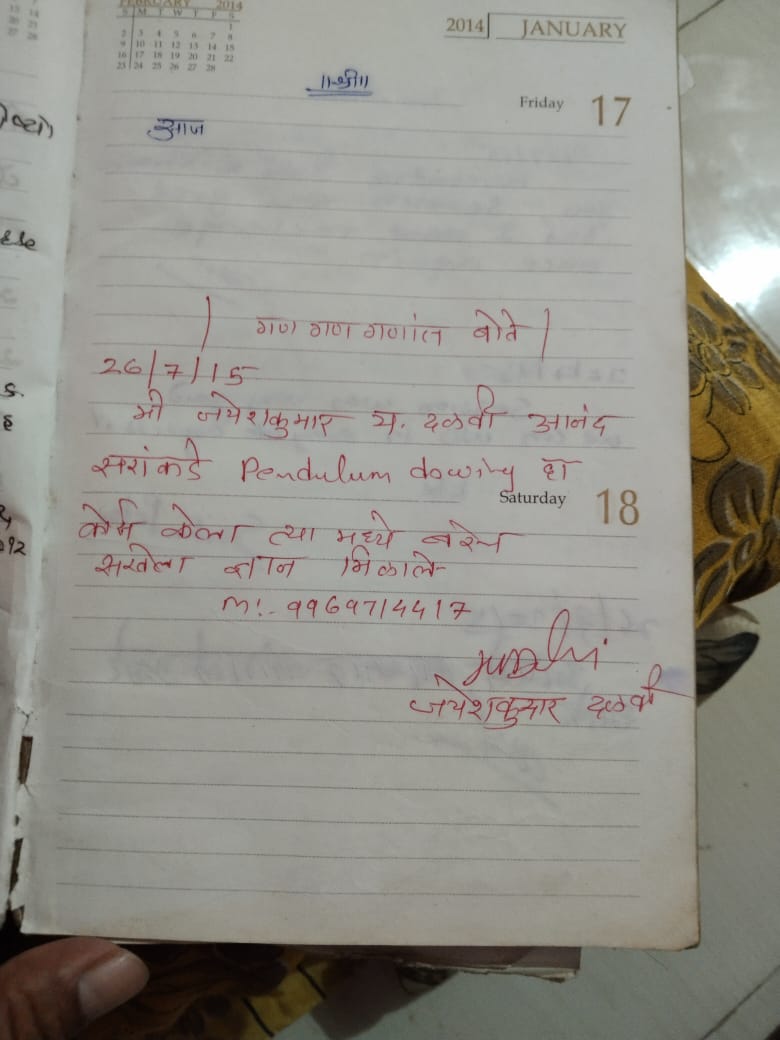 FEBRUARY 2014
S M T W F S
1
2 3 4 5 6 7 8
9 10 11 12 13 14 15
16 17 18 19 20 21 22
23 24 25 26 27 28
2014 JANUARY
॥श्री॥
Friday 17
आज
| गण गण गणांत बोते |
26/7/15
मी जयेशकुमार य. दळवी आनंद
सरांकडे Pendulum dowing हा
Saturday 18
कोर्स केला त्या मध्ये बरेच
सखोला ज्ञान मिळाले
m:- 9969714417
जयेशकुमार दळवी